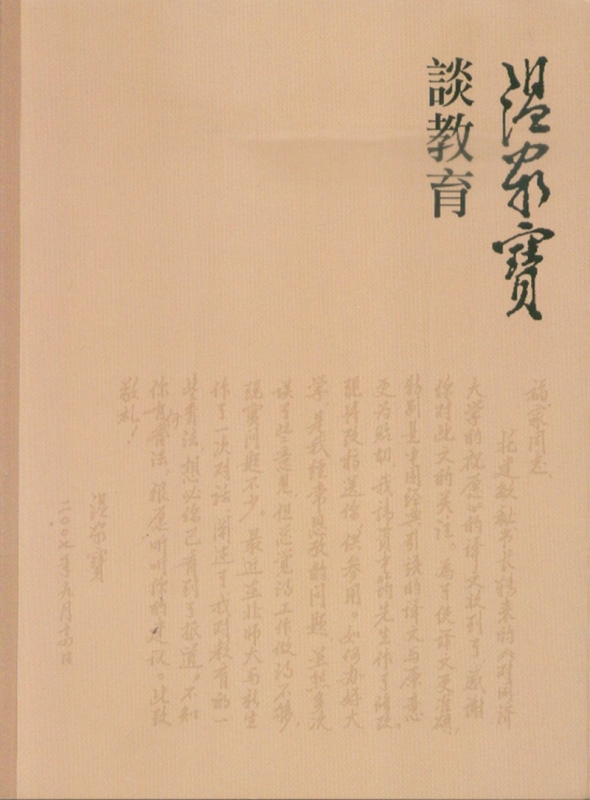 温家寶
談教育
福家同志:
托建敏秘书长转来的《对同济
大学的祝愿》的译文收到了,感谢
你对此文的关注。为了使译文更准确,
特别是中国经典引语的译文与原意
更为贴切,我请
先生作了修改,
现将改稿送你,供参用。如何办好大
学,是我经常思考的问题,虽然多次
谈了些意见,但总觉得工作做得不够,
现实问题不少。最近在北师大与新生
作了一次对话,阐述了我对教育的一
些看法,想必你已看到了报道,不知
你有何看法,很愿听听你的建议。此致
敬礼!
温家寶
二〇〇七年九月
日